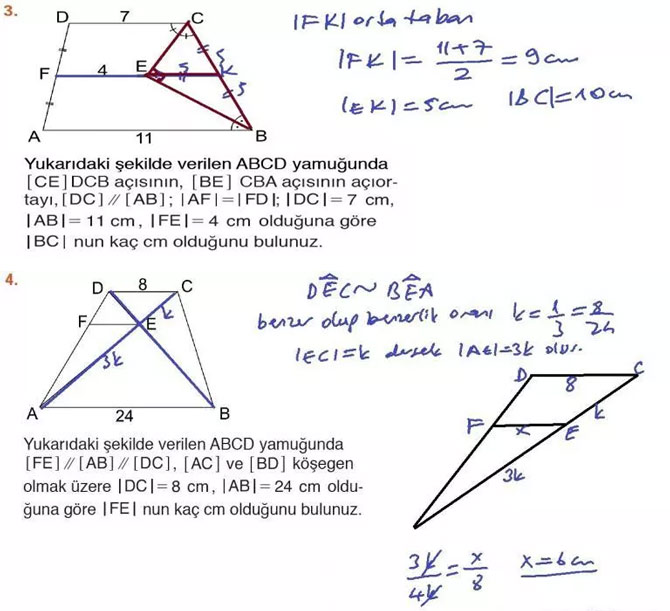 3.
D 7 C
F 4 E K
5 5 5
A 11 B
|FK| orta taban
|FK| = 11+7 / 2 = 9 cm
|EK| = 5cm |BC| = 10cm
Yukarıdaki şekilde verilen ABCD yamuğunda
[CE] DCB açısının, [BE] CBA açısının açıor-
tayı, [DC] // [AB]; |AF|=|FD|; |DC|= 7 cm,
|AB|= 11 cm, |FE|= 4 cm olduğuna göre
|BC| nun kaç cm olduğunu bulunuz.
4.
D 8 C
F E k
3k
A 24 B
DÊC ~ BÊA
benzer olup benzerlik oranı k = 1/3 = 8/24
|EC|=k dersek |AE|=3k olur.
D 8 C
F x E k
3k
Yukarıdaki şekilde verilen ABCD yamuğunda
[FE] // [AB] // [DC], [AC] ve [BD] köşegen
olmak üzere |DC|= 8 cm, |AB|= 24 cm oldu-
ğuna göre |FE| nun kaç cm olduğunu bulunuz.
3k/4k = x/8 x=6cm